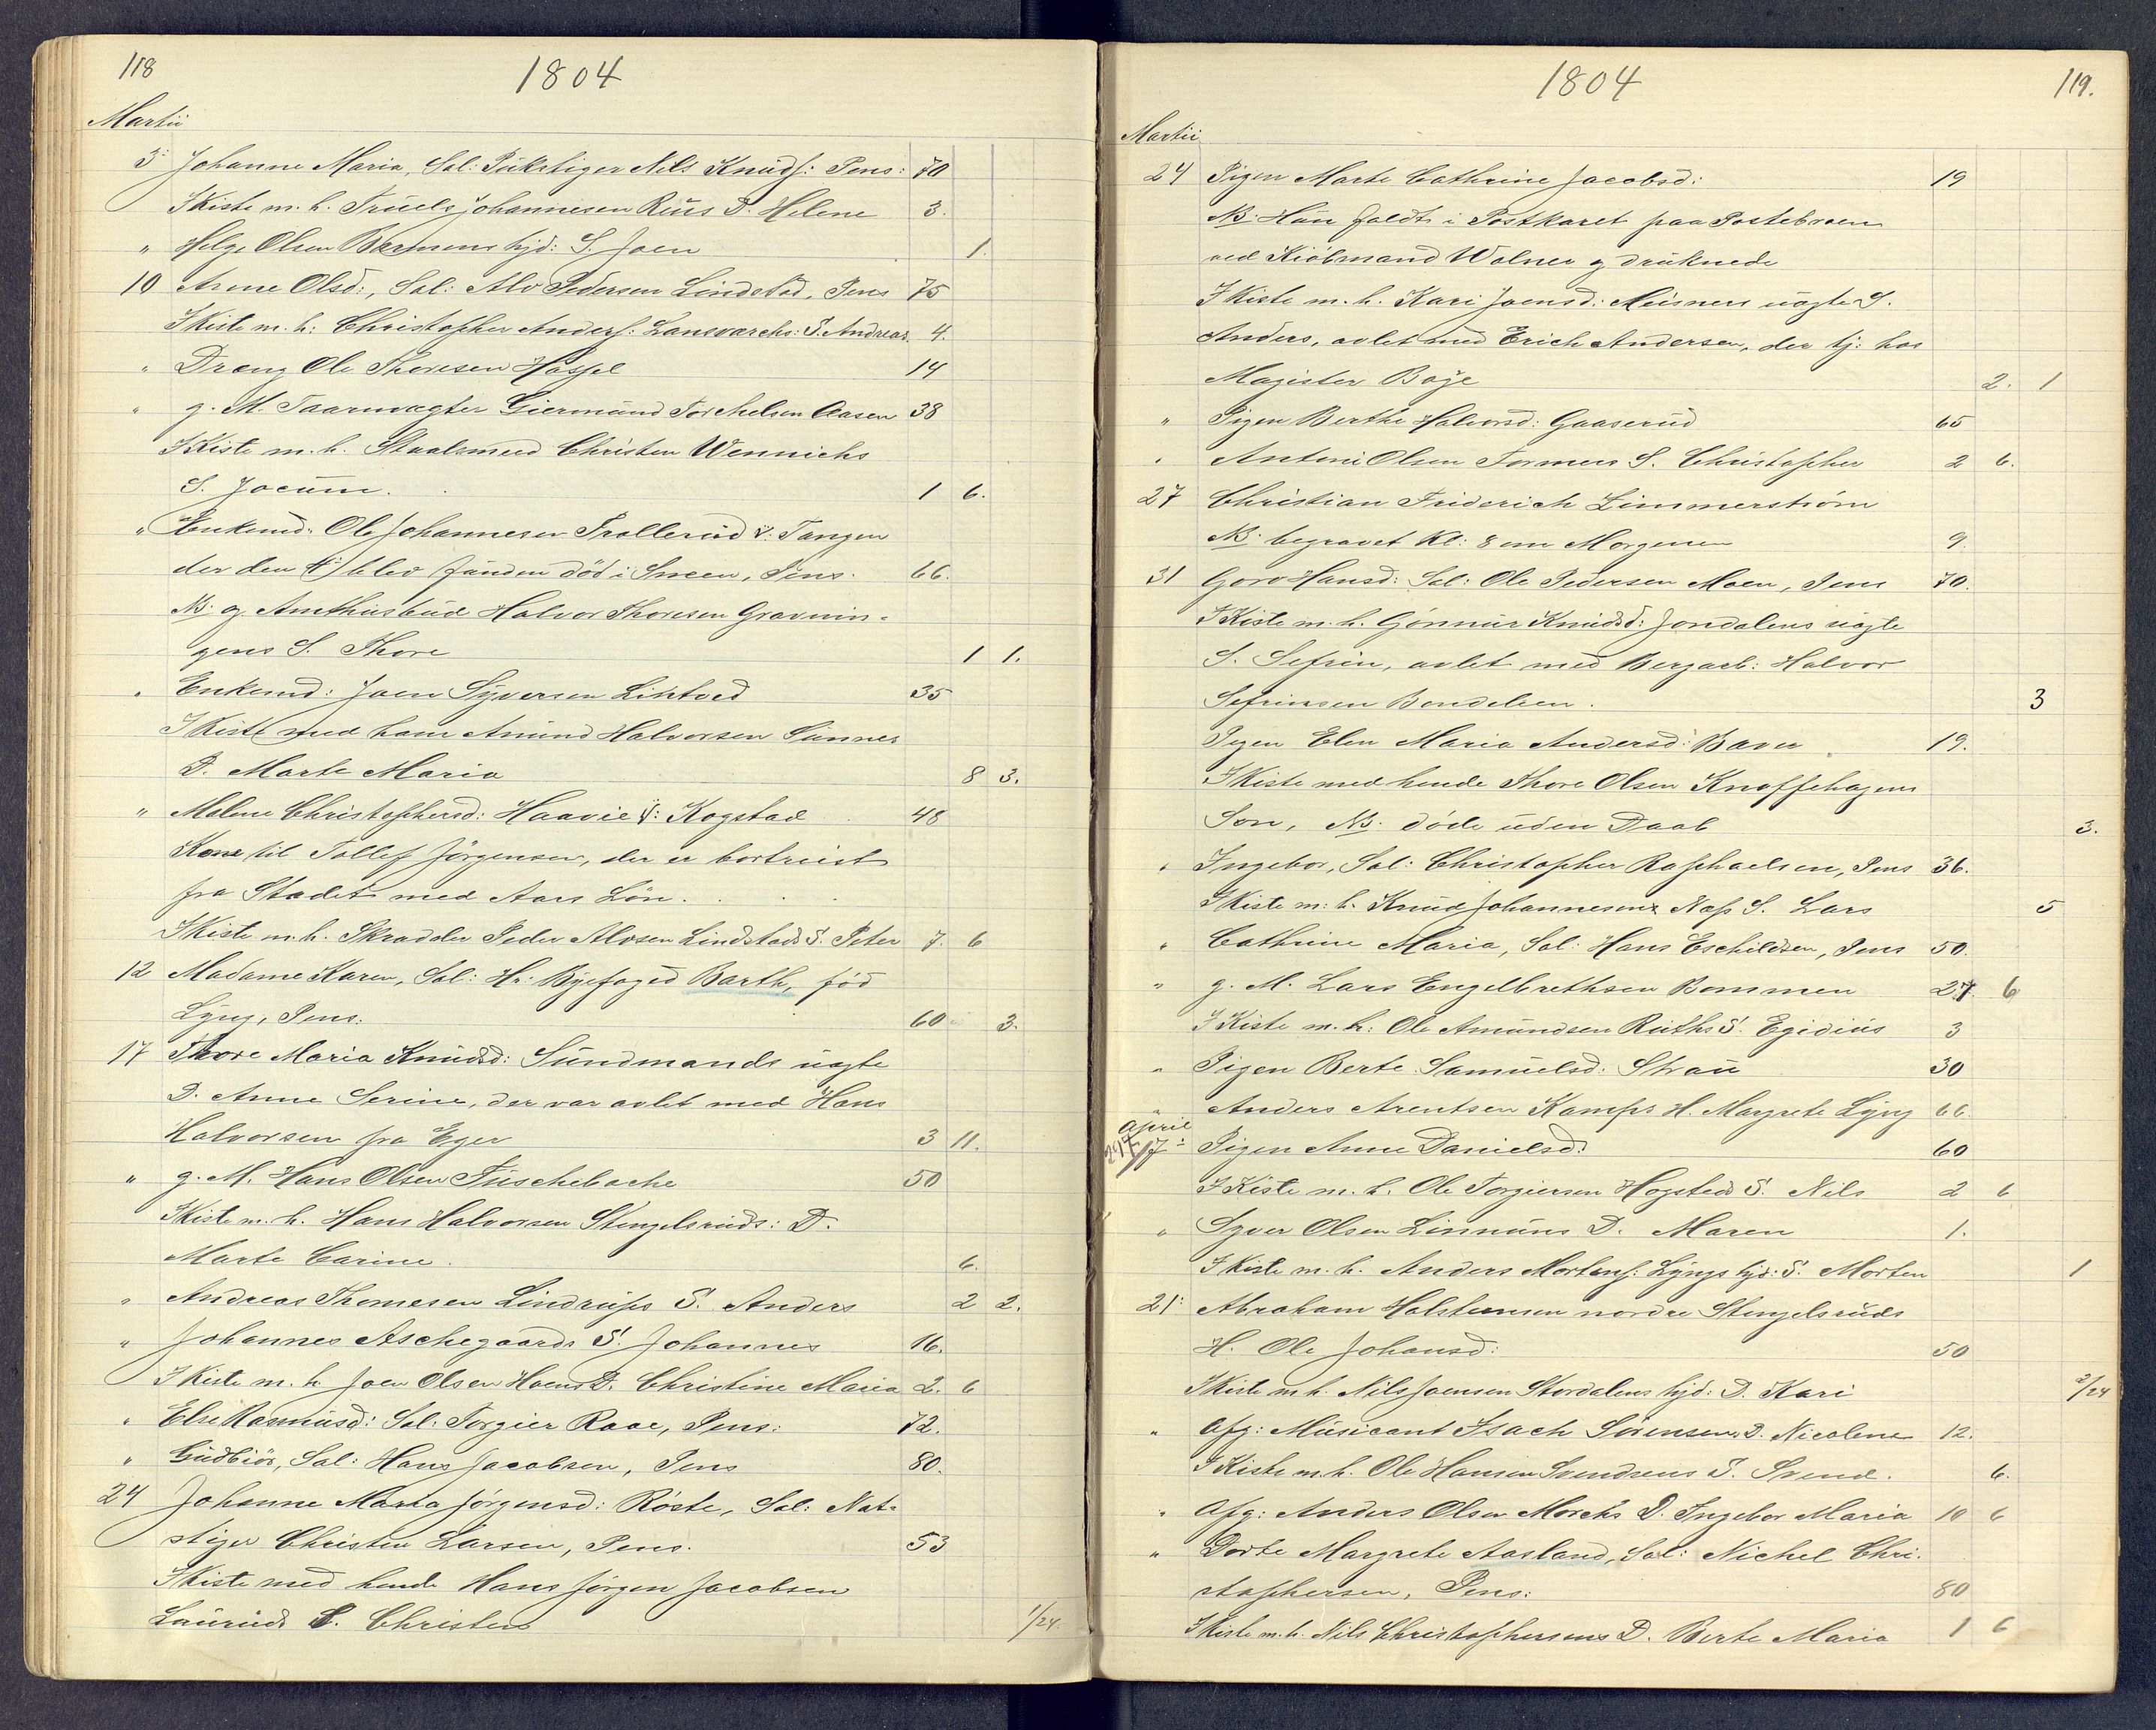 118
1804
Martii
3: Johanne Maria, Sal: Pukstiger Nils Knuds: Pens: 70
I Kiste m. h. Truels Johannesen Reus D. Helene 3.
" Helge Olsen Bermens hjd: S. Joen 1.
10 Anne Olsd:, Sal: Alv Pedersen Lindstad, Pens 75
I Kiste m. h: Christopher Anders: Lansværchs: S. Andreas 4.
" Dreng Ole Thoresen Hassel 14
" g. M. Taarnvægter Giermund Torchelsen Aasen 38
I Kiste m. h. Staalsmed Christen Wennichs
S. Jocum. 1 6.
" Enkemd: Ole Johannesen Trollerud v: Tangen
der den blev funden död i Sneen, Pens. 66.
NB. og Amthusbud Halvor Thoresen Gravnin-
gens S. Thore 1 1.
" Enkemd: Joen Syversen Lintved 35
I Kiste med ham Amund Halvorsen Sunnes
D. Marte Maria 8 3.
" Malene Christophersd: Haavie v: Kogstad 48
Kone til Tollef Jörgensen, der er bortreist
fra Stadet med Aars Lön.
I Kiste m. h. Skradder Peder Alvsen Lindstads S. Peter 7. 6
12 Madame Karen, Sal: Hr: Byefoged Barth, föd
Lyng, Pens: 60 3.
17 Thore Maria Knudsd: Sundmands uægte
D. Anne Serine, der var avlet med Hans
Halvorsen fra Eger 3 11.
" g. M. Hans Olsen Fuschebache 50
I Kiste m. h. Hans Halvorsen Stengelsruds: D.
Marte Carine. 6.
" Andreas Thomesen Lindrups S. Anders 2 2.
" Johannes Aschegaards S. Johannes 16.
I Kiste m. h. Joen Olsen Hoens D. Christine Maria 2. 6
" Else Rasmusd: Sal: Torgier Raae, Pens: 72.
" Gudbiör, Sal: Hans Jacobsen, Pens 80.
24 Johanne Maria Jörgensd: Röste, Sal: Nat-
stiger Christen Larsen, Pens. 53
I Kiste med hende Hans Jörgen Jacobsen
Lauruds S. Christen 1/24.
1804
119.
Martii
24 Pigen Marte Cathrine Jacobsd: 19
NB. Hun faldt i Postkaret paa Postebroen
ved Kiöbmand Wolner og druknede
I Kiste m. h. Kari Joensd: Meisners uægte S.
Anders, avlet med Erich Andersen, der tj: hos
Magister Boye 2. 1
" Pigen Berthe Halvorsd: Gaaserud 65
" Antoni Olsen Formens S. Christopher 2 6.
27 Christian Friderich Limmerström
NB. begravet Kl: 8 om Morgenen 9.
31 Goro Hansd: Sal: Ole Pedersen Moen, Pens 70.
I Kiste m. h. Gönnur Knudsd: Jondalens uægte
S. Sefrin, avlet med Bergarb: Halvor
Sefrinsen Bondelien. 3
Pigen Elen Maria Andersd: Baner 19.
I Kiste med hende Thore Olsen Knoffehagens
Sön, NB. döde uden Daab 3.
" Ingebor, Sal: Christopher Raphaelsen, Pens 36.
I Kiste m: h. Knud Johannesens Næs S. Lars 5
" Cathrine Maria, Sal: Hans Eschildsen, Pens 50.
" g. M. Lars Engelbrethsen Bommen 27. 6
I Kiste m. h: Ole Amundsen Ruths S. Egidius 3
" Pigen Berte Samuelsd: Strau 30
" Anders Arentsen Kamps H. Margrete Lyng 66
April
7: Pigen Anne Danielsd: 60
I Kiste m. h. Ole Torgiersen Hogsteds S. Nils 2 6
" Syver Olsen Linnuns D. Maren 1.
I Kiste m. h. Anders Mortens: Lyngs hjd: S. Morten 1
21: Abraham Holstensen nordre Stengelsruds
H. Ole Johansd: 50
I Kiste m. h. Nils Joensen Stordalens hjd: D. Kari 2/24
" Afg: Musicant Isach Sörensens D. Nicoline 12.
I Kiste m. h. Ole Hansen Svendsens S. Svend. 6.
" Afg: Anders Olsen Morchs D. Ingebor Maria 10 6
" Dorte Margrete Aasland, Sal: Nichel Chri-
stophersen, Pens: 80
I Kiste m. h. Nils Christophersens D. Berte Maria 1 6